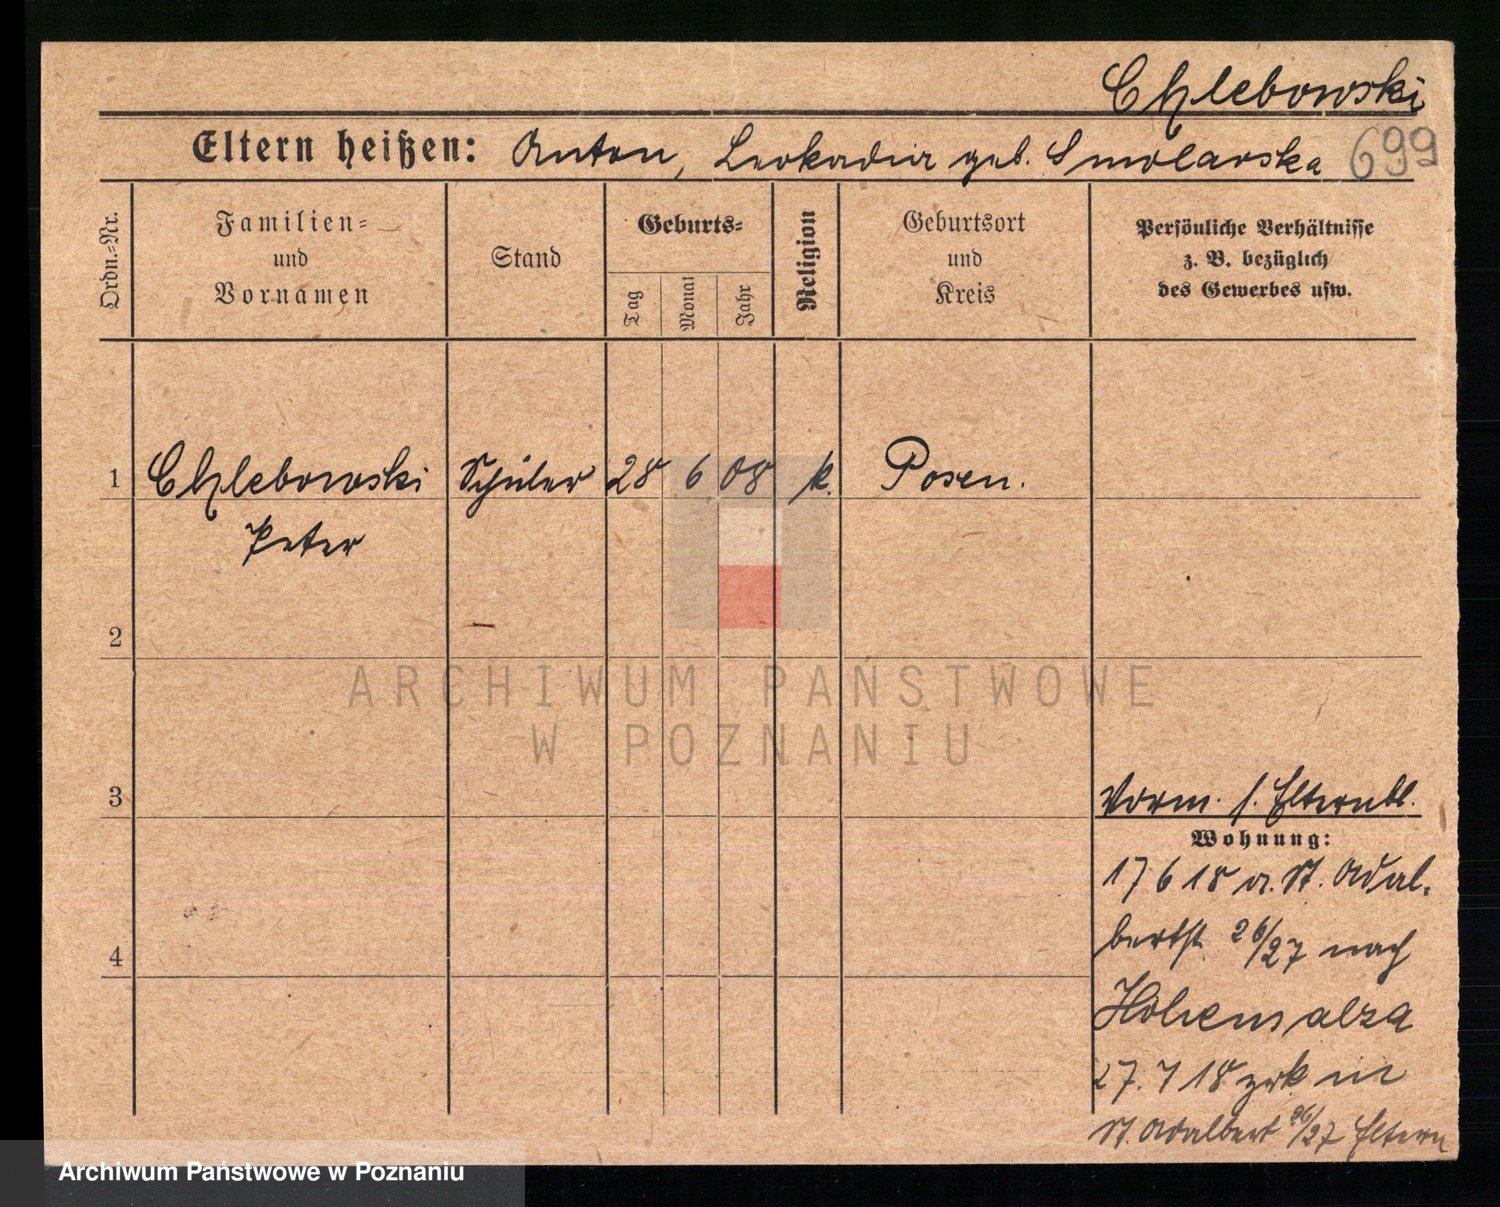 Chlebowski
Eltern heißen: Anton, Leokadia geb. Smolarska 699
Ordn.-Nr.
Familien- und Vornamen
Stand
Geburts-
Tag
Monat
Jahr
Religion
Geburtsort und Kreis
Persönliche Verhältnisse z. B. bezüglich des Gewerbes usw.
1 Chlebowski Schüler 28 6 08 k. Posen.
Peter
2
ARCHIWUM PAŃSTWOWE
W POZNANIU
3
Vorm. s. Elternbl.
Wohnung:
17 6 18 a. St. Adal-
bertst. 26/27 nach
4
Hohensalza
27. 7 18 zrk in
St. Adalbert 26/27 Eltern
Archiwum Państwowe w Poznaniu